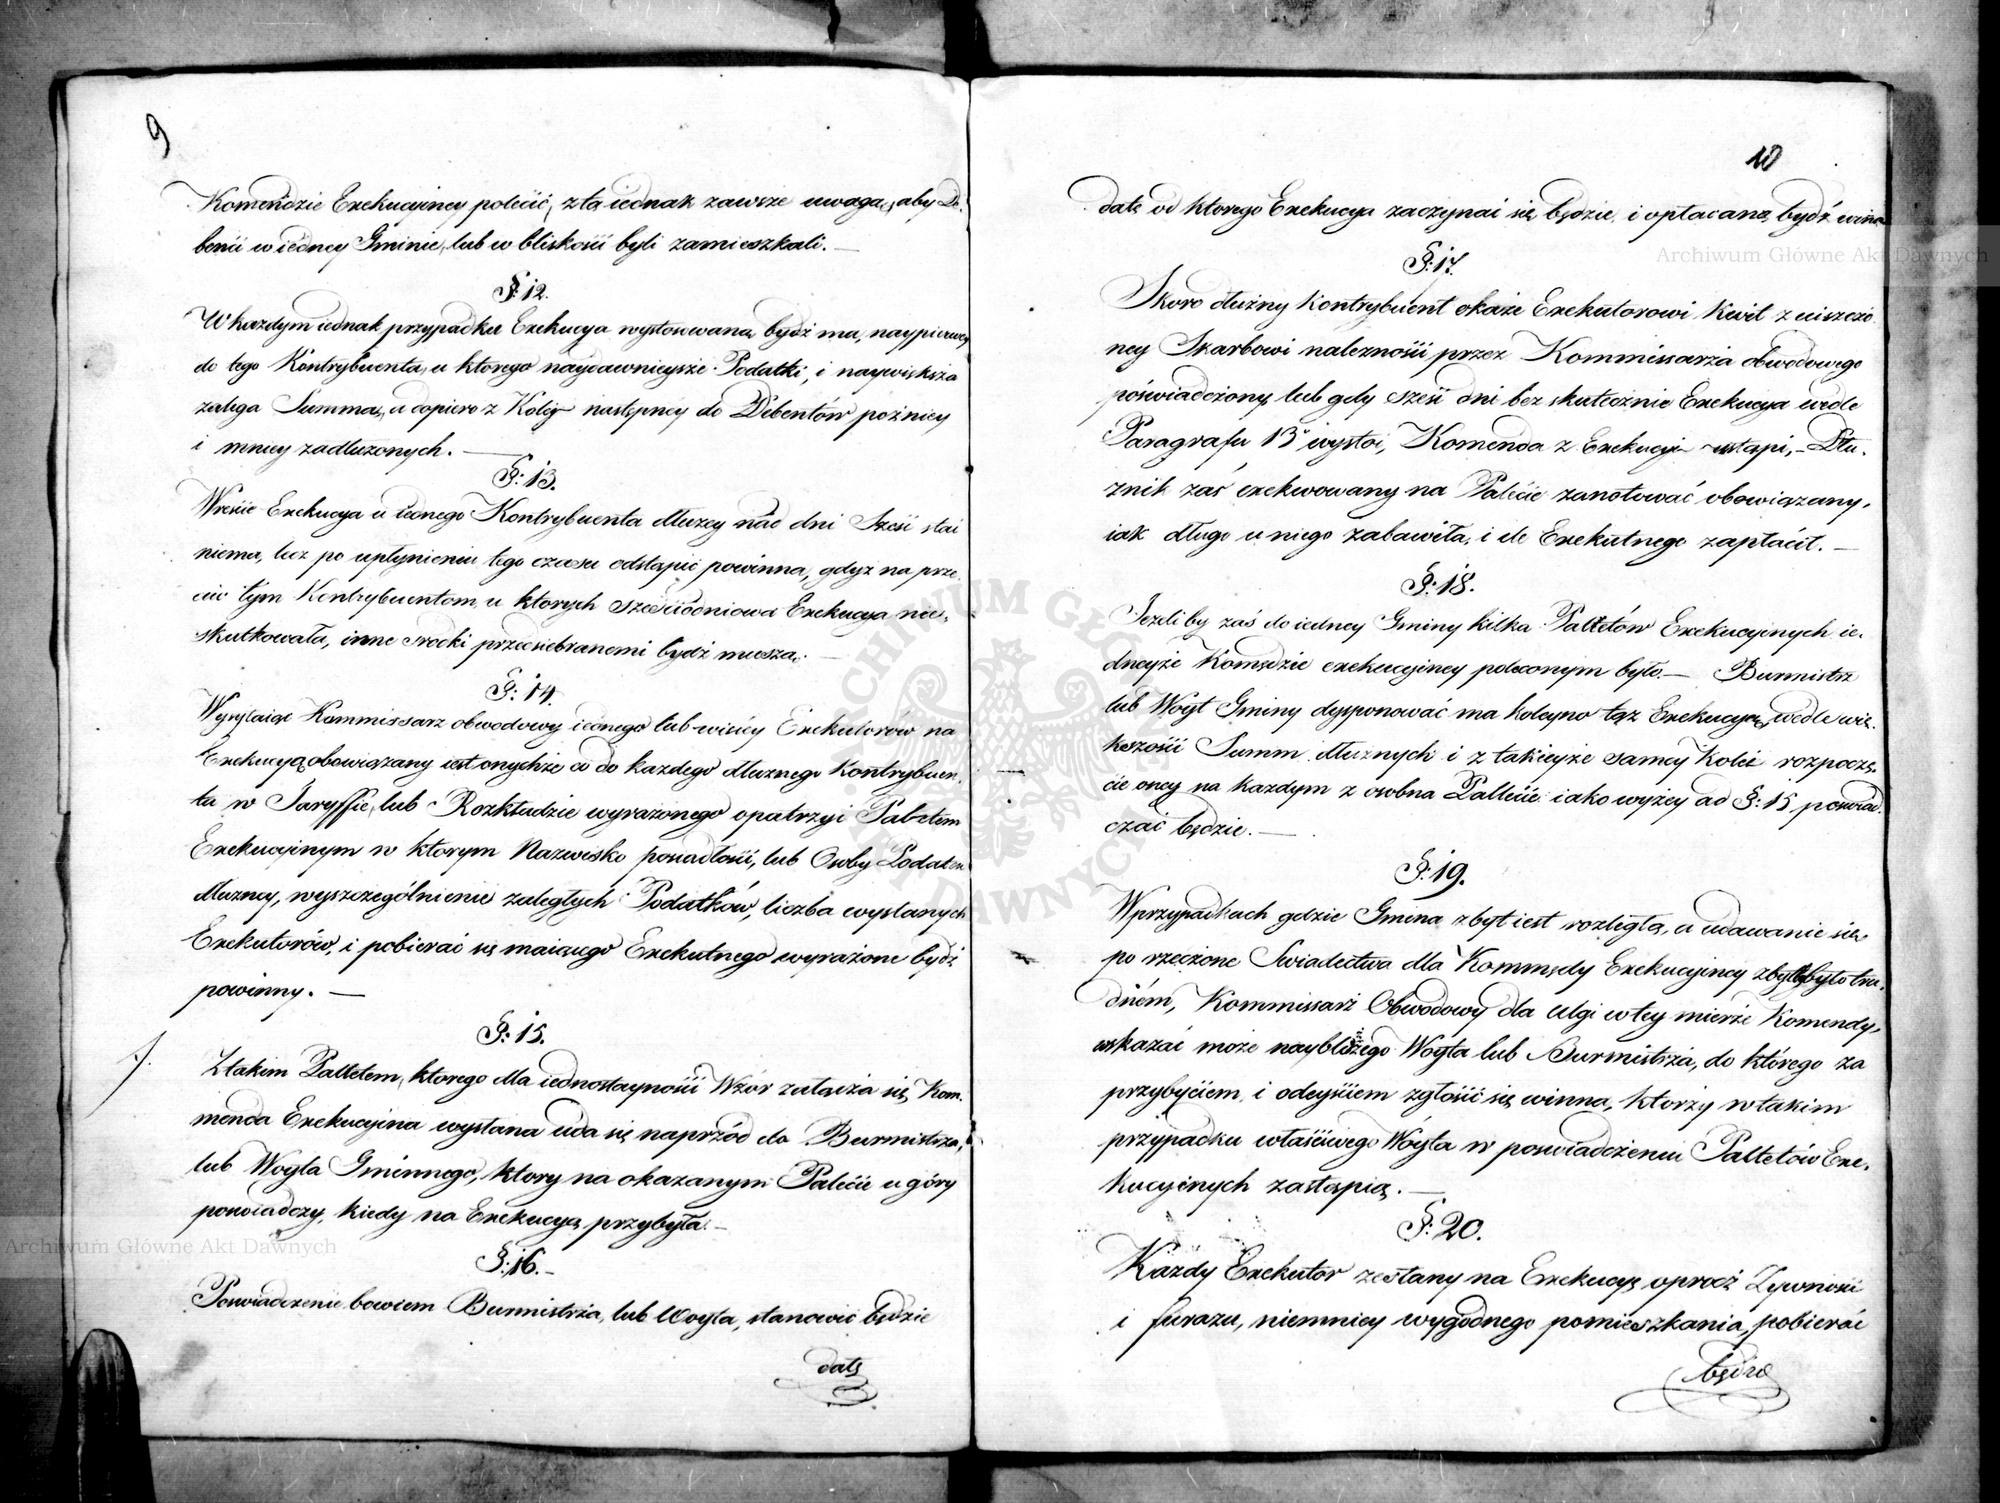 9
Komendzie Exekucyiney polecić, z tą iednak zawsze uwagą, aby De=
benci w iedney Gminie, lub w bliskości byli zamieszkali. —
§: 12.
W każdym iednak przypadku Exekucya wystosowaną bydź ma, naypierwey
do tego Kontrybuenta, u ktorego naydawnieysze Podatki, i naywiększa
zalega Summa, a dopiero z Koléy następney do Debentów poźniey
i mniey zadłużonych. —
§: 13.
Wreście Exekucya u iednego Kontrybuenta dłużey nad dni Sześć stać
niema, lecz po upłynieniu tego czasu odstąpić powinna, gdyż na prze
ciw tym Kontrybuentom, u ktorych sześciodniowa Exekucya nie=
skutkowała, inne srodki przedsiebranemi bydź muszą. —
§: 14.
Wysyłaiąc Kommissarz obwodowy iednego lub więcey Exekutorów na
Exekucyą, obowiązany iest onychże co do każdego dłużnego Kontrybuen=
ta w Taryffie, lub Rozkładzie wyrażonego opatrzyć Paletem
Exekucyinym w ktorym Nazwisko posiadłości, lub Osoby Podatek
dłużney, wyszczególnienie zaległych Podatków, liczba wysłanych
Exekutorów, i pobierać się maiącego Exekutnego wyrażone bydź
powinny. —
§: 15.
Z takim Palletem, ktorego dla iednostayności Wzór załącza się, Kom=
menda Exekucyina wysłana uda się naprzód do Burmistrza,
lub Woyta Gminnego, ktory na okazanym Palecie u góry
poswiadczy, kiedy na Exekucyą przybyła. —
§: 16. —
Poswiadczenie bowiem Burmistrza, lub Woyta, stanowić będzie
datę
10
datę od ktorego Exekucya zaczynać się będzie, i opłacaną bydź winna
§: 17.
Skoro dłużny Kontrybuent okaże Exekutorowi Kwit z uiszczo
ney Skarbowi należności przez Kommissarza obwodowego
poświadczony, lub gdy sześć dni bez skutecznie Exekucya wedle
Paragrafu 13 wystoi, Komenda z Exekucyi ustąpi, — Dłu=
żnik zaś exekwowany na Palecie zanotować obowiązany,
iak długo u niego zabawiła, i ile Exekutnego zapłacił. —
§: 18.
Jeżeli by zaś do iedney Gminy kilka Palletów Exekucyinych ie=
dneyże Komędzie exekucyiney poleconym było — Burmistrz
lub Woyt Gminy dysponować ma koleyno tąż Exekucyą, wedle wię=
kszości Summ dłużnych i z takieyże samey Kolei rozpoczę=
cie oney na każdym z osobna Pallecie iako wyżey ad §: 15 poswiad=
czać będzie. —
§: 19.
W przypadkach gdzie Gmina zbyt iest rozległa, a udawanie się
po rzeczone Swiadectwa dla Kommędy Exekucyiney zbyt byłobytru=
dném, Kommissarz Obwodowy dla ulgi w tey mierze Komendy,
wskazać może naybliższego Woyta lub Burmistrza, do którego za
przybyciem, i odeyściem zgłosić się winna, ktorzy w takim
przypadku właściwego Woyta w poswiadczeniu Palletów Exe=
kucyinych zastąpią. —
§: 20.
Każdy Exekutor zesłany na Exekucyę oprócz Zywności
i furażu, niemniey wygodnego pomieszkania, pobierać
będzie
Archiwum Główne Akt Dawnych
Archiwum Główne Akt Dawnych
ARCHIWUM GŁÓWNE AKT DAWNYCH